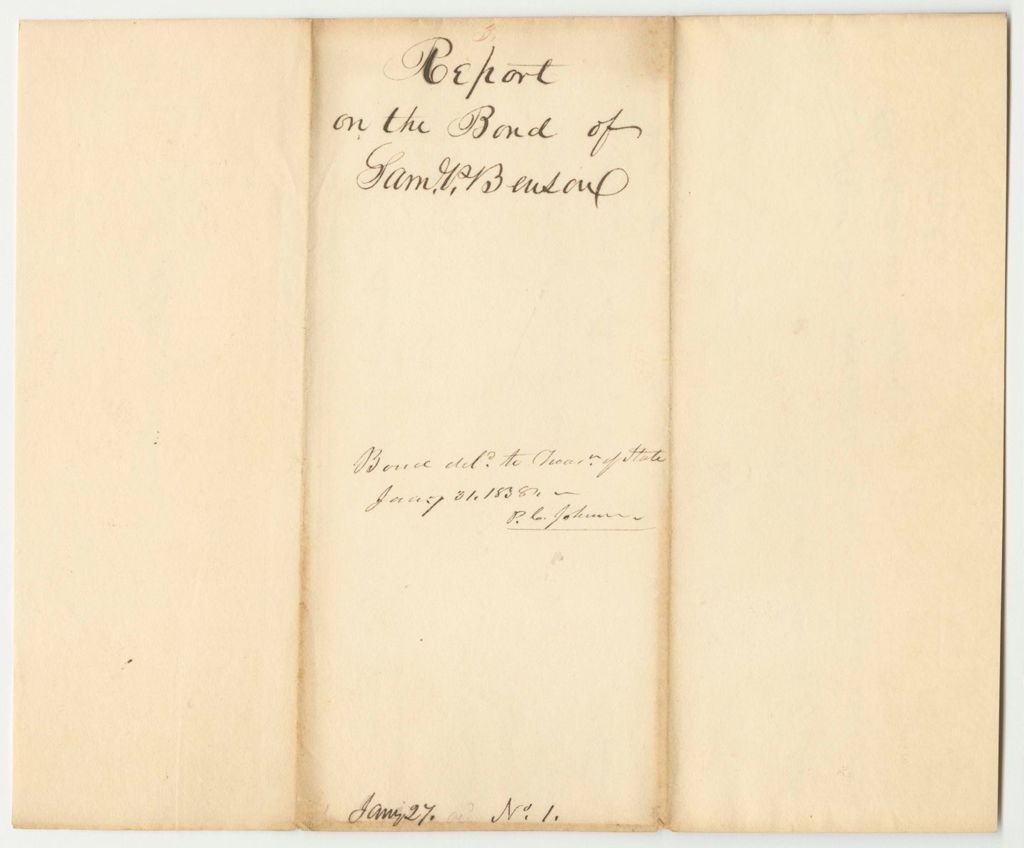 3.
Report
on the Bond of
Saml. P. Benson
Bond deld. to Treasr. of State
Jany 31. 1838. —
P. C. Johnson
Jany 27. No. 1.